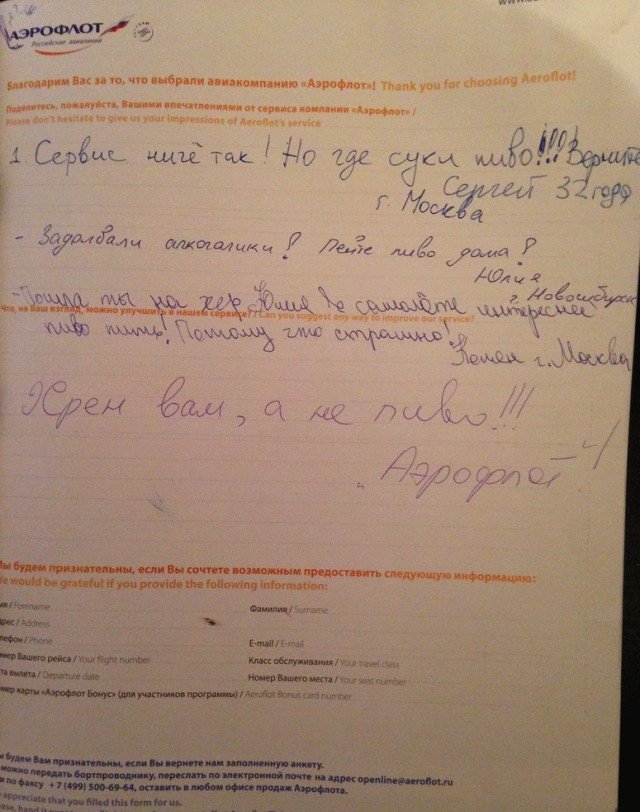 АЭРОФЛОТ
Российские авиалинии
Благодарим Вас за то, что выбрали авиакомпанию «Аэрофлот»! Thank you for choosing Aeroflot!
Поделитесь, пожалуйста, Вашими впечатлениями от сервиса компании «Аэрофлот» /
Please don't hesitate to give us your impressions of Aeroflot's service
1. Сервис ниче так! Но где суки пиво!!!! Верните
Сергей 32 года
г. Москва
- Задолбали алкоголики! Пейте пиво дома!
Юлия
г. Новосибирск
- Пошла ты на хер Юлия в самолёте интереснее
Что, на Ваш взгляд, можно улучшить в нашем сервисе? / Can you suggest any way to improve our service?
пиво пить! Потому что страшно!
г. Москва
Хрен вам, а не пиво!!!
"Аэрофлот"
Мы будем признательны, если Вы сочтете возможным предоставить следующую информацию:
We would be grateful if you provide the following information:
мя / Forename Фамилия / Surname
дрес / Address
лефон / Phone E-mail / E-mail
мер Вашего рейса / Your flight number Класс обслуживания / Your travel class
та вылета / Departure date Номер Вашего места / Your seat number
мер карты «Аэрофлот Бонус» (для участников программы) / Aeroflot Bonus card number
ы будем Вам признательны, если Вы вернете нам заполненную анкету.
можно передать бортпроводнику, переслать по электронной почте на адрес openline@aeroflot.ru
и по факсу +7 (499) 500-69-64, оставить в любом офисе продаж Аэрофлота.
appreciate that you filled this form for us.